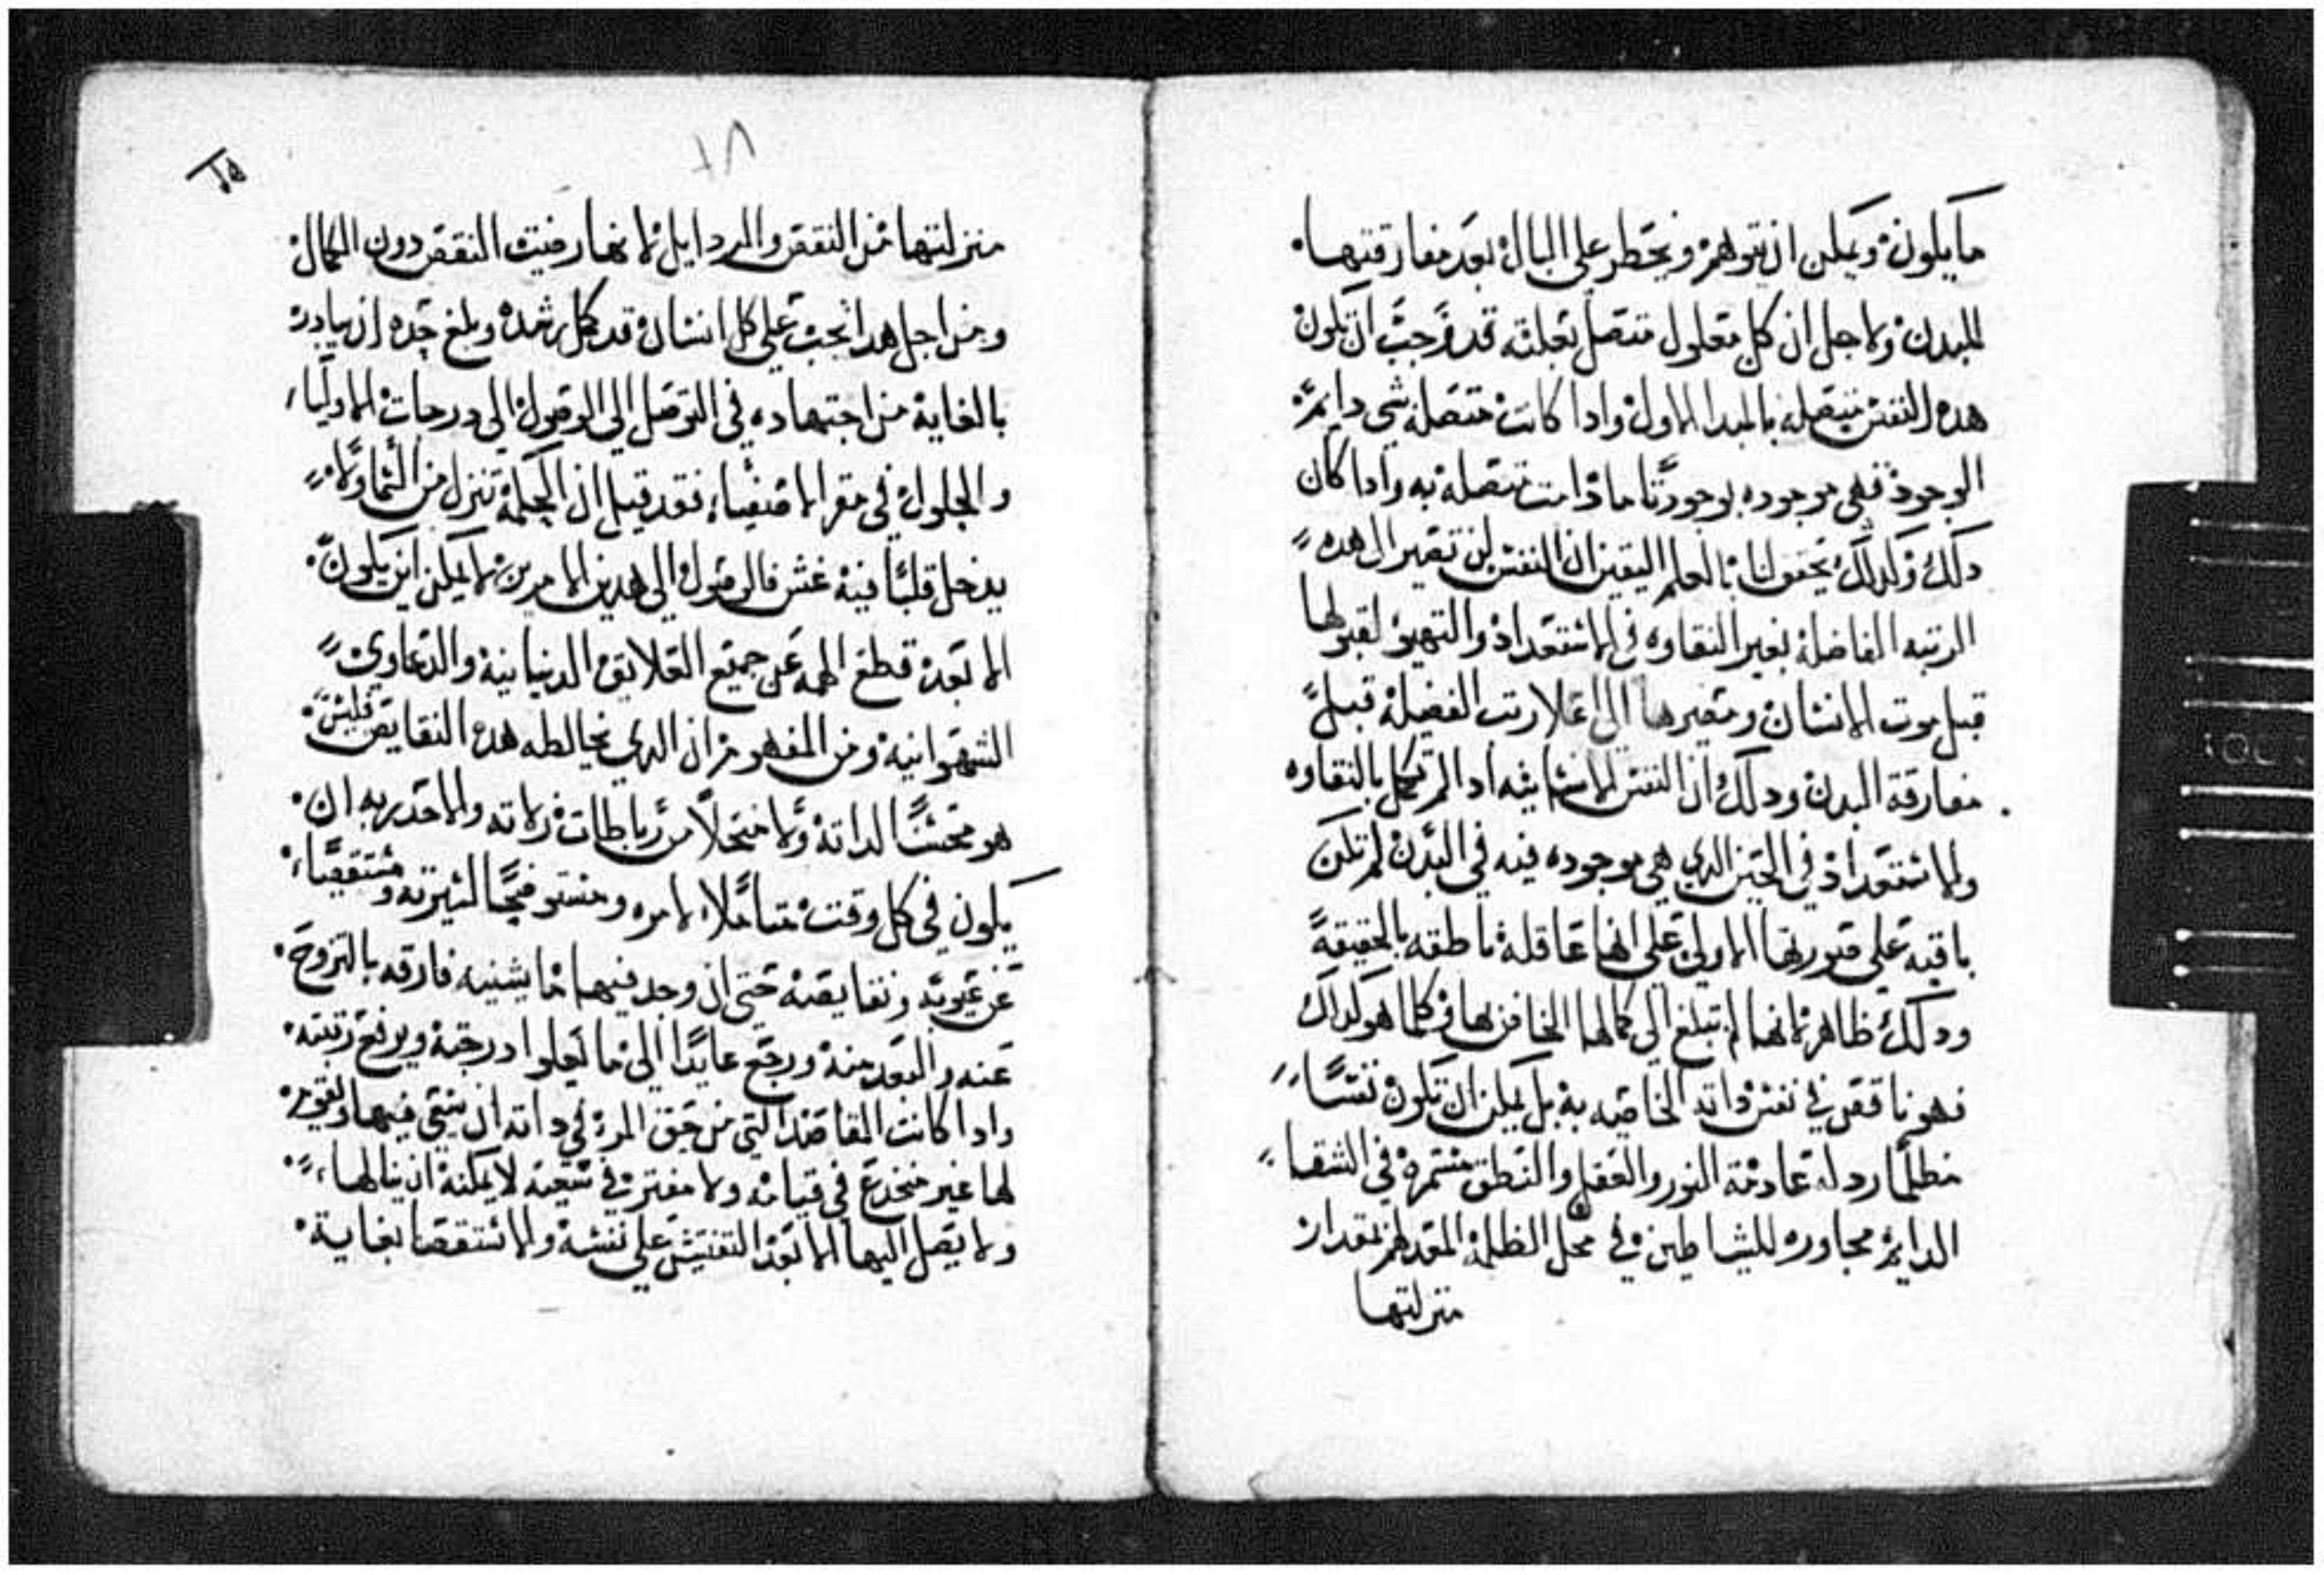 ما يكون ويمكن ان يتوهم ويخطر على البال بعد مفارقتها
للبدن ولاجل ان كل معلول متصل بعلته قد وجب ان تكون
هده النفس متصله بالمبدا الاول وادا كانت متصله بشي دايم
الوجود فهي موجوده بوجود ما دامت متصله به وادا كان
دلك ولدلك يحق لنا بالعلم اليقين ان النفس لن تصير الى هده
الرتبه الفاضلة بغير النقاوه في الاستعداد والتهيو لقبولها
قبل موت الانسان ومصيرها الى اعلا رتب الفضيلة قبل
مفارقة البدن ودلك ان النفس الانسانيه ادا لم تكمل بالنقاوه
والاستعداد في الحين الدي هي موجوده فيه في البدن لم تكن
باقيه على صورتها الاولى على انها عاقلة ناطقه بالحقيقة
ودلك ظاهر لانها لم تبلغ الى كمالها الخاص بها فكلما هو كداك
فهو ناقص في نفس داته الخاصيه به بل يمكن ان تكون نفسًا
مظلمًا ردله عادمة النور والعقل والنطق مستمرة في الشقا
الدايم مجاوره للشياطين في محل الظلمة المدلهم بمقدار
منزلتها
٧٨
منزلتها من النقص والردايل لانها رضيت النقص دون الكمال
ومن اجل هدا يجب على كل انسان قد كمل رشده وبلغ حده ان يبادر
بالغاية من اجتهاده في التوصل الى الوصول الى درجات الاوليا
والحلول في مقر الاصفياء فقد قيل ان الحكمة تنزل من السما ولا
يدخل قلبًا فيه غش فالوصول الى هدين الامرين لا يمكن ان يكون
الا بعد قطع الهمه عن جميع العلايق الدنيانية والدعاوي
الشهوانية ومن المفهوم ان الدي يخالطه هده النقايص فليس
هو محسنًا لداته ولا منحلًا من رباطات زلاته والاحد به ان
يكون في كل وقت متاملًا لامره ومستوضحًا لسيرته ومستقصيًا
عن عيوبه ونقايصه حتى ان وجد فيهما ما يشنيه فارقه بالنزوح
عنه والبعد منه ورجع عايدًا الى ما يعلوا درجته ويرفع رتبته
وادا كانت المقاصد التي من حق المرء في داته ان ينتهي فيها ويقوم
لها غير منخدع في قيامه ولا مفتر في سعيه لا يمكنه ان ينالها
ولا يصل اليها الا بعد التفتيش على نفسه والاستقصا بغاية